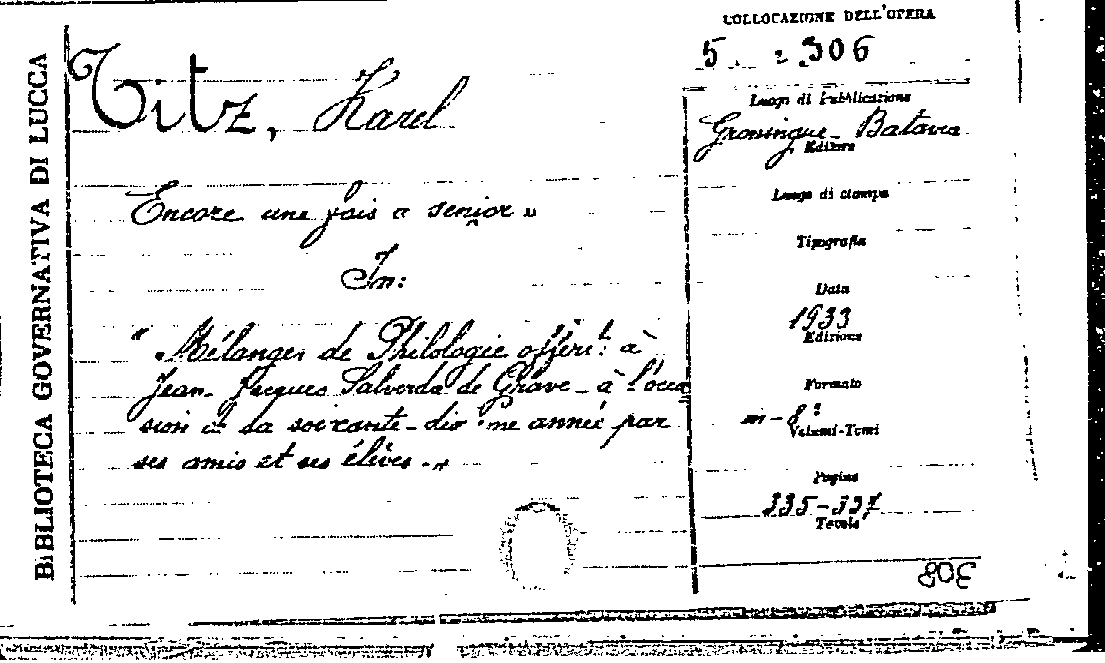 BIBLIOTECA GOVERNATIVA DI LUCCA
COLLOCAZIONE DELL'OPERA
5 306
Titz, Karel
Luogo di Pubblicazione
Groningue - Batavia
Editore
Encore une fois « senior »
Luogo di stampa
Tipografia
In:
Data
1933
Edizione
" Mélanges de Philologie offerts à
Jean-Jacques Salverda de Grave - à l'occa
Formato
sion de sa soixante-dix me année par
in-8°
Volumi-Tomi
ses amis et ses élèves."
Pagine
335-337
Tavole
308